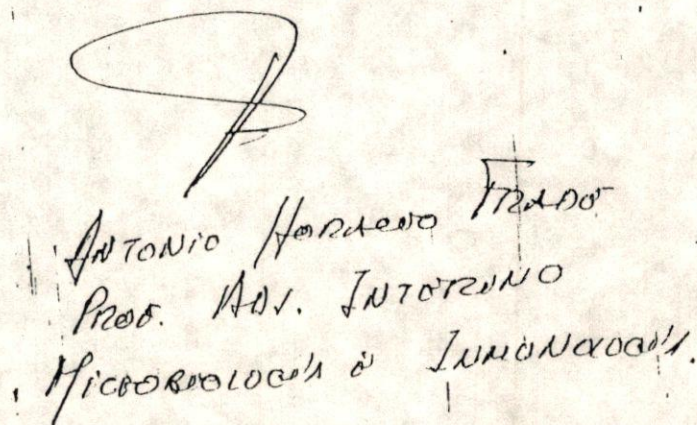 ANTONIO HORACIO FRADE
PROF. ADJ. INTERINO
MICROBIOLOGÍA E INMUNOLOGÍA.